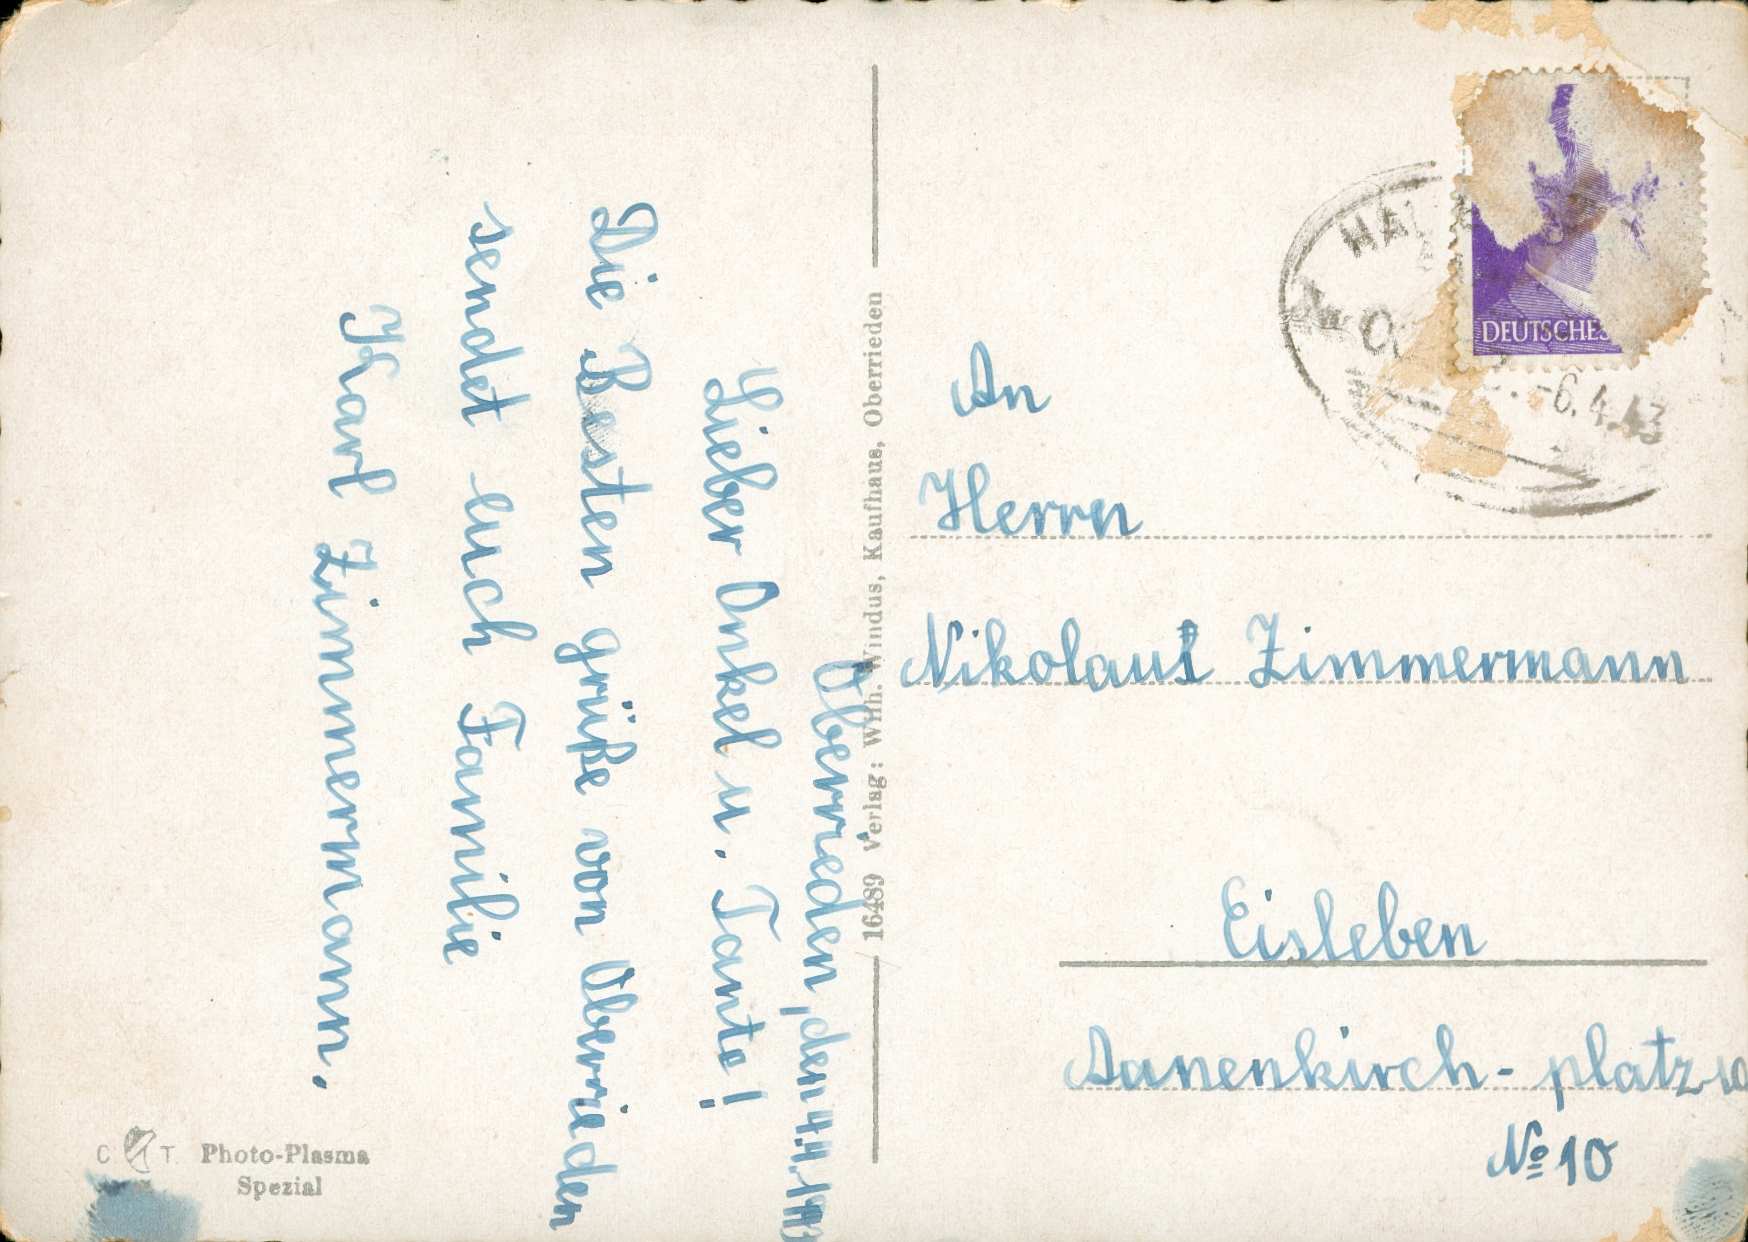 Oberrieden, den 4.4.
Lieber Onkel u. Tante!
Die Besten grüße von Oberrieden
sendet euch Familie
Karl Zimmermann.
16489 Verlag: Wilh. Windus, Kaufhaus, Oberrieden
DEUTSCHES
-6.4.43
An
Herrn
Nikolaus Zimmermann
Eisleben
Aanenkirch-platz 10
No 10
C T Photo-Plasma
Spezial